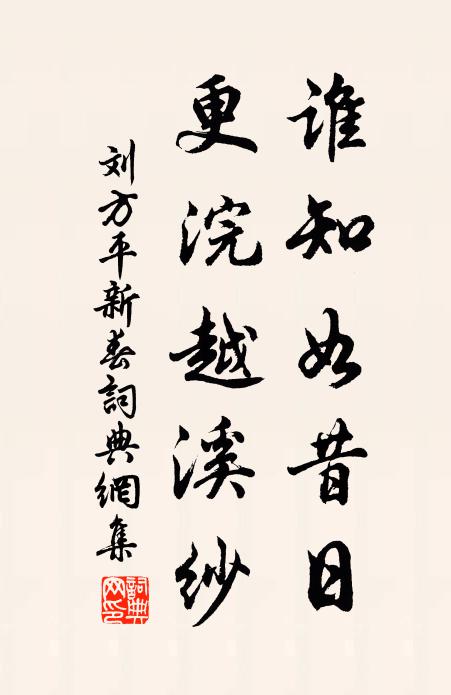 谁知如昔日
更浣越溪纱
刘方平新春詞典網集
詞典网印